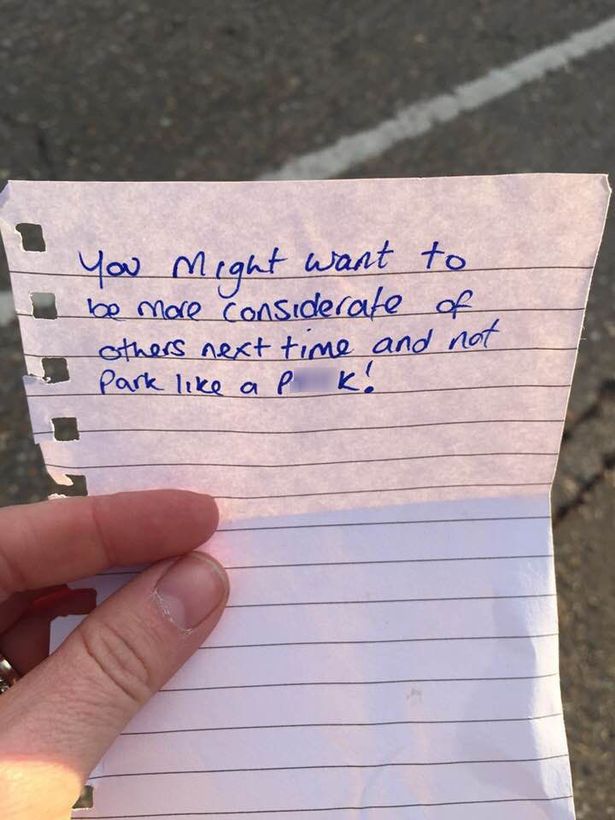 You Might want to
be more considerate of
others next time and not
Park like a P K!